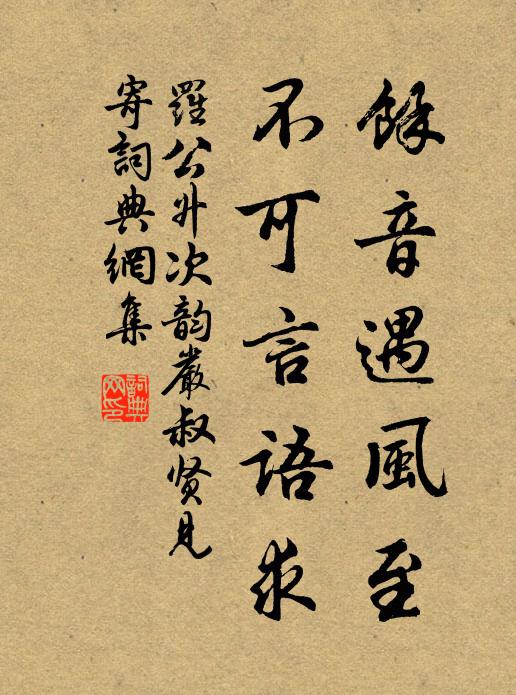 餘音遇風至
不可言語求
羅公升次韵嚴叔贤見
寄詞典網集
詞典网印